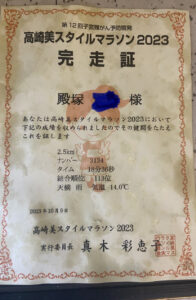 第12回子宮頸がん予防啓発
高崎美スタイルマラソン2023
完走証
殿塚 様
あなたは高崎美スタイルマラソン2023において
下記の成績を収められましたのでその健闘をたたえ
これを証します
2.5km
ナンバー 3134
タイム 18分36秒
総合順位 113位
天候 雨 気温 14.0℃
2023年10月9日
高崎美スタイルマラソン2023
実行委員長 真木 彩恵子